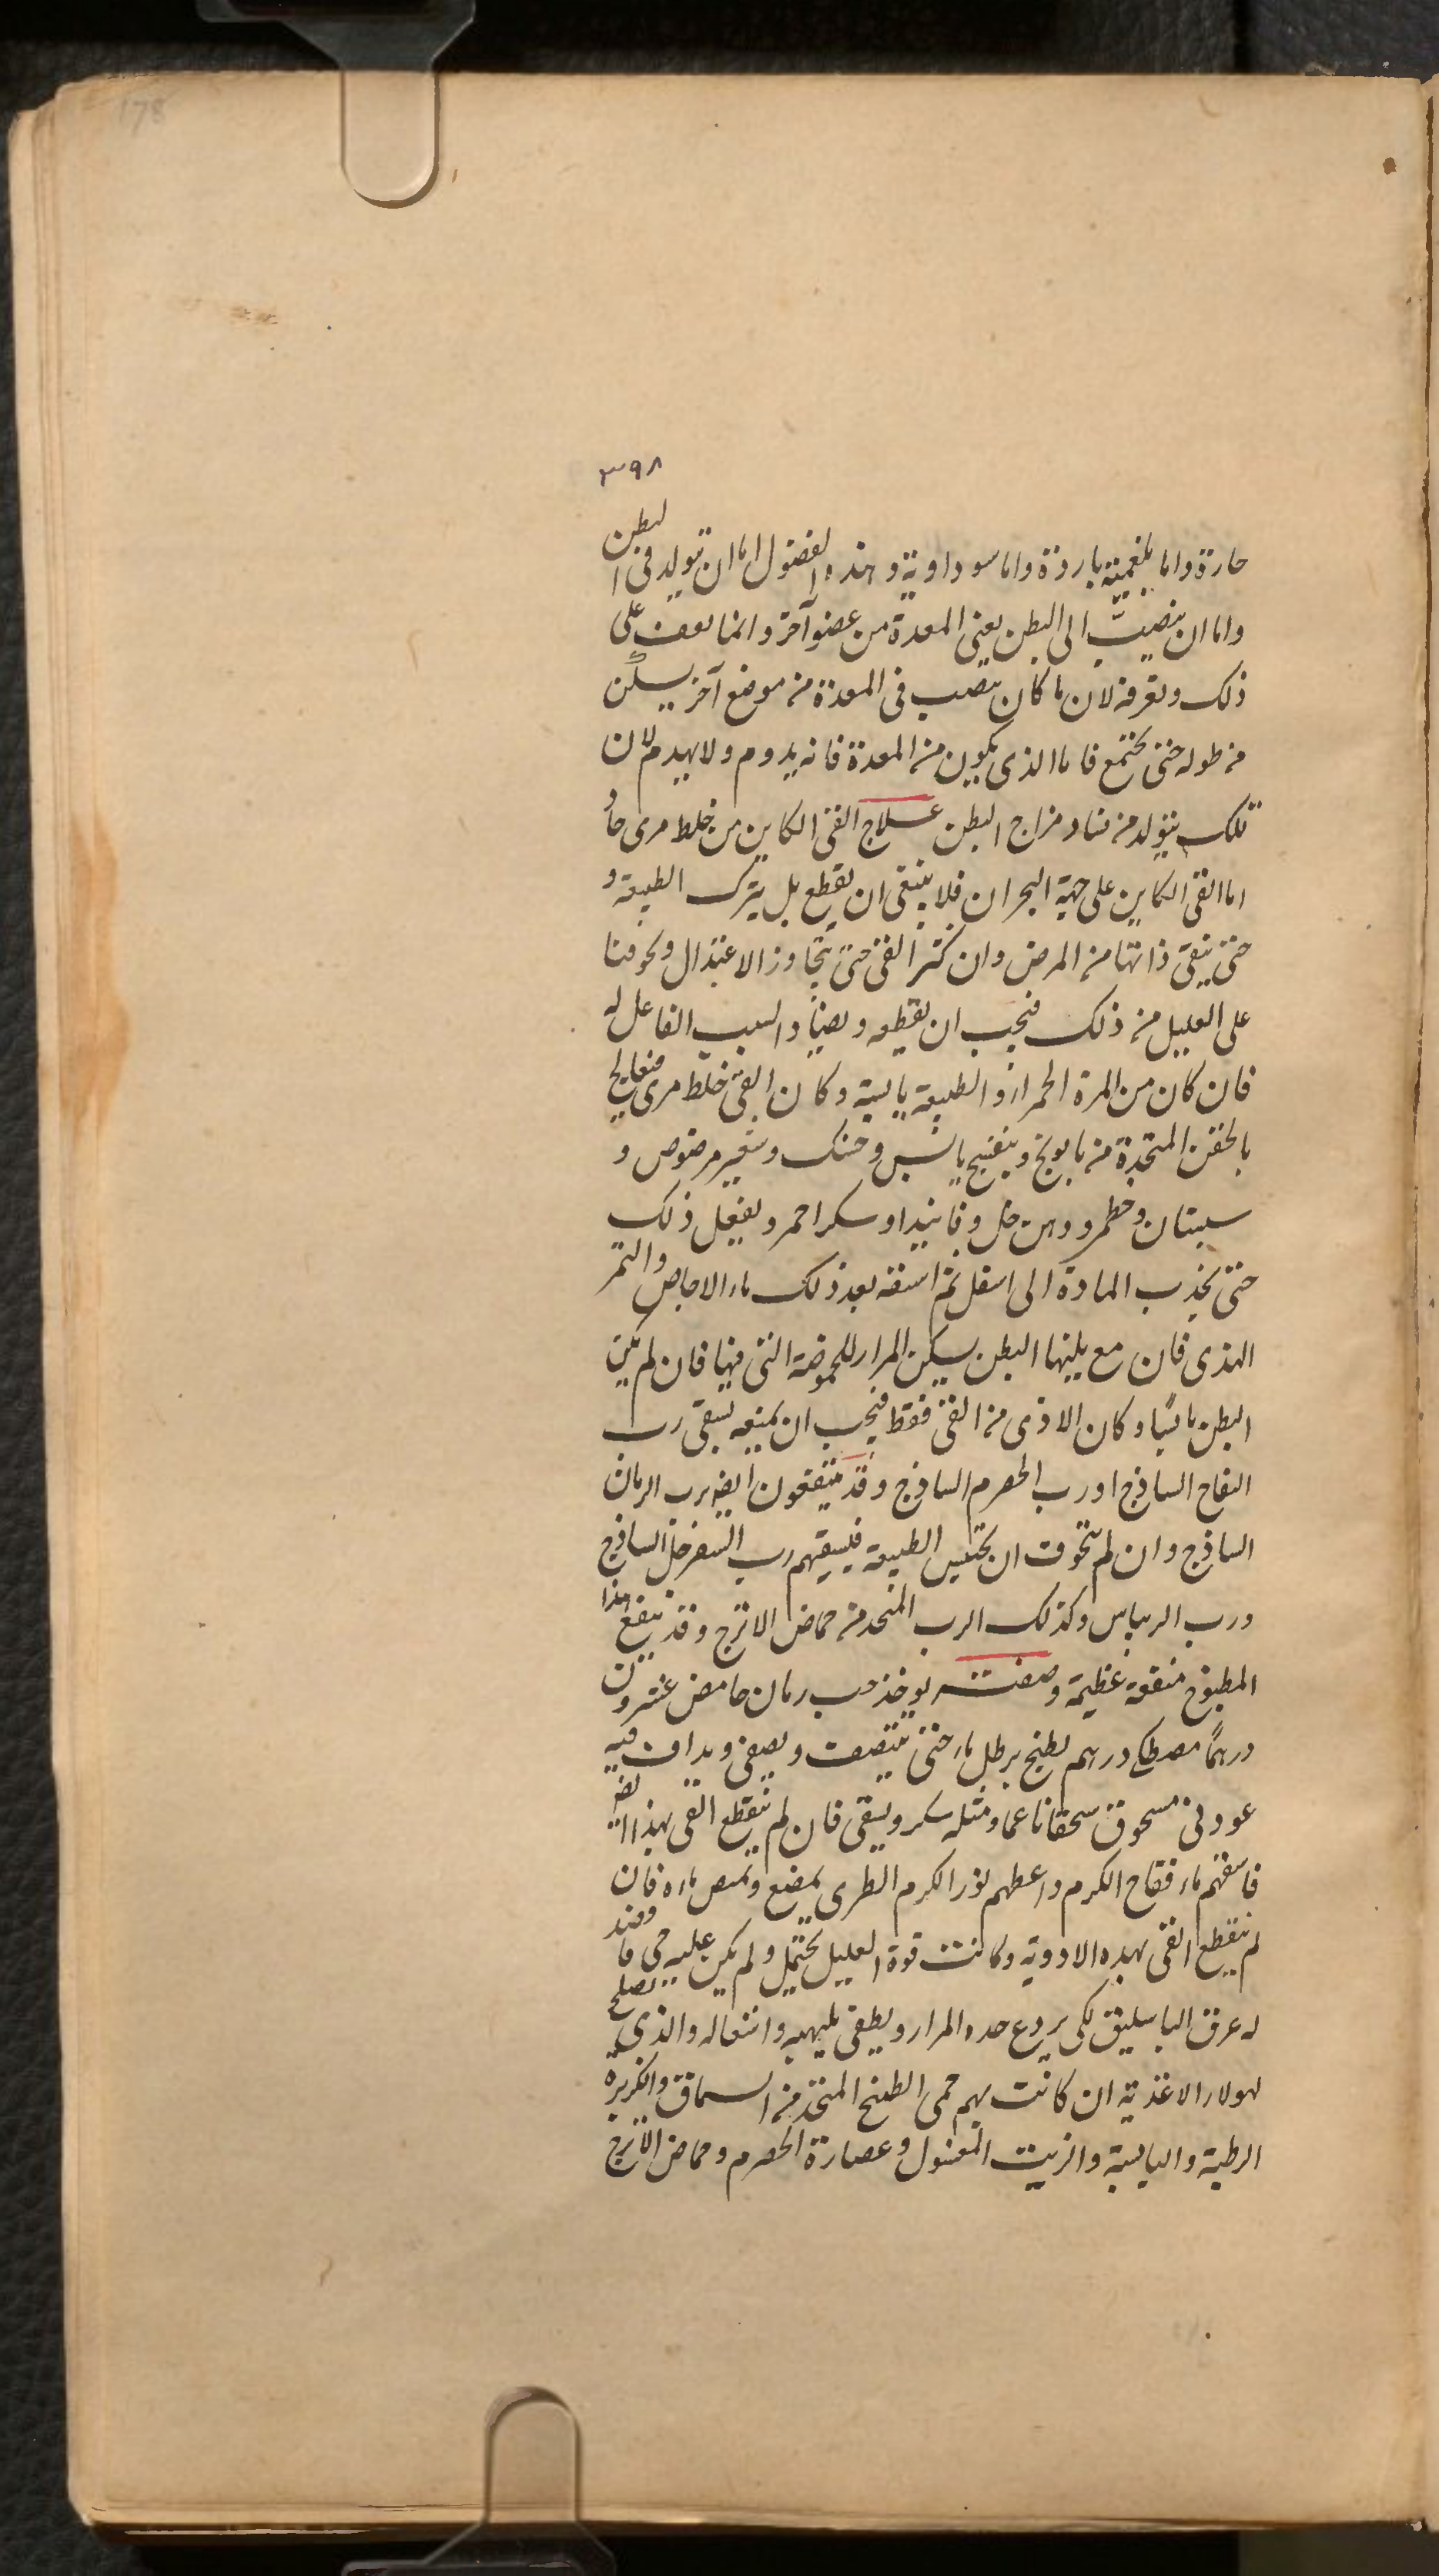 178
٣٩٨
حارة واما بلغمية باردة واما سوداوية وهذه الفضول اما ان تتولد فى البطن
واما ان ينصبّ الى البطن يعنى المعدة من عضو آخر وانما يوقف على
ذلك وتعرفه لان ما كان ينصب فى المعدة من موضع آخر يسكن
من طوله حتى يجتمع فاما الذى يكون من المعدة فانه يدوم ولا يهدم لان
تلك يتولد من فساد مزاج البطن علاج القئ الكاين من خلط مرى حاد
اما القئ الكاين على جهة البحران فلا ينبغى ان يقطع بل يترك الطبيعة و
حتى ينقى ذاتها من المرض وان كثر القئ حتى تجاوز الاعتدال وتخوفنا
على العليل من ذلك فيجب ان يقطعه ويضاد السبب الفاعل له
فان كان من المرة الحمراء والطبيعة يابسة وكان القئ خلط مرى فيعالج
بالحقن المتخذة من بابونج وبنفسج يابس وحسك وشعير مرضوض و
سبستان وخطمر ودهن خل وفانيذ او سكر احمر ويفعل ذلك
حتى يجذب المادة الى اسفل ثم اسقه بعد ذلك ماء الاجاص والتمر
الهندى فان مع يلينها البطن يسكن المرار للحموضة التى فيها فان لم يكن
البطن يابسًا وكان الاذى من القئ فقط فيجب ان يمنعه بسقى رب
التفاح الساذج او رب الحصرم الساذج وقد ينتفعون ايضه برب الرمان
الساذج وان لم يتخوف ان يحتبس الطبيعة فيسقيهم رب السفرجل الساذج
ورب الريباس وكذلك الرب المتخذ من حماض الاترج وقد ينفع هذا
المطبوخ منفعة عظيمة وصفته يوخذ حب رمان حامض عشرون
درهمًا مصطكى درهم يطبخ برطل ماء حتى ينتصف ويصفى ويداف فيه
عود نى مسحوق سحقا ناعما ومثله سكر ويسقى فان لم ينقطع القى بهذا ايضه
فاسقهم ماء فقاح الكرم واعطهم نور الكرم الطرى يمضغ ويمص ماءه فان
لم ينقطع القى بهذه الادوية وكانت قوة العليل يحتمل ولم يكن عليه حمى فافصد
له عرق الباسليق لكى يردع حده المرار ويطفى تلهبه واشتعاله والذى يصلح
لهولاء الاغذية ان كانت بهم حمى الطبخ المتخذ من السماق والكزبرة
الرطبة واليابسة والزيت المغسول وعصارة الحصرم وحماض الاترج